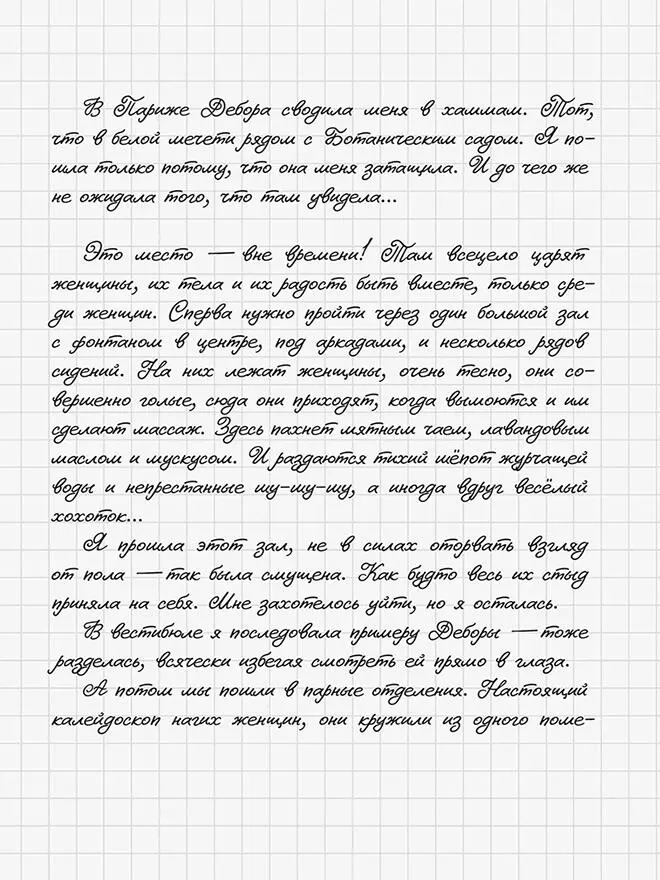 В Париже Дебора сводила меня в хаммам. Тот,
что в белой мечети рядом с Ботаническим садом. Я по-
шла только потому, что она меня затащила. И до чего же
не ожидала того, что там увидела...
Это место — вне времени! Там всецело царят
женщины, их тела и их радость быть вместе, только сре-
ди женщин. Сперва нужно пройти через один большой зал
с фонтаном в центре, под аркадами, и несколько рядов
сидений. На них лежат женщины, очень тесно, они со-
вершенно голые, сюда они приходят, когда вымоются и им
сделают массаж. Здесь пахнет мятным чаем, лавандовым
маслом и мускусом. И раздаются тихий шёпот журчащей
воды и непрестанные шу-шу-шу, а иногда вдруг весёлый
хохоток...
Я прошла этот зал, не в силах оторвать взгляд
от пола — так была смущена. Как будто весь их стыд
приняла на себя. Мне захотелось уйти, но я осталась.
В вестибюле я последовала примеру Деборы — тоже
разделась, всячески избегая смотреть ей прямо в глаза.
А потом мы пошли в парные отделения. Настоящий
калейдоскоп нагих женщин, они кружили из одного поме-